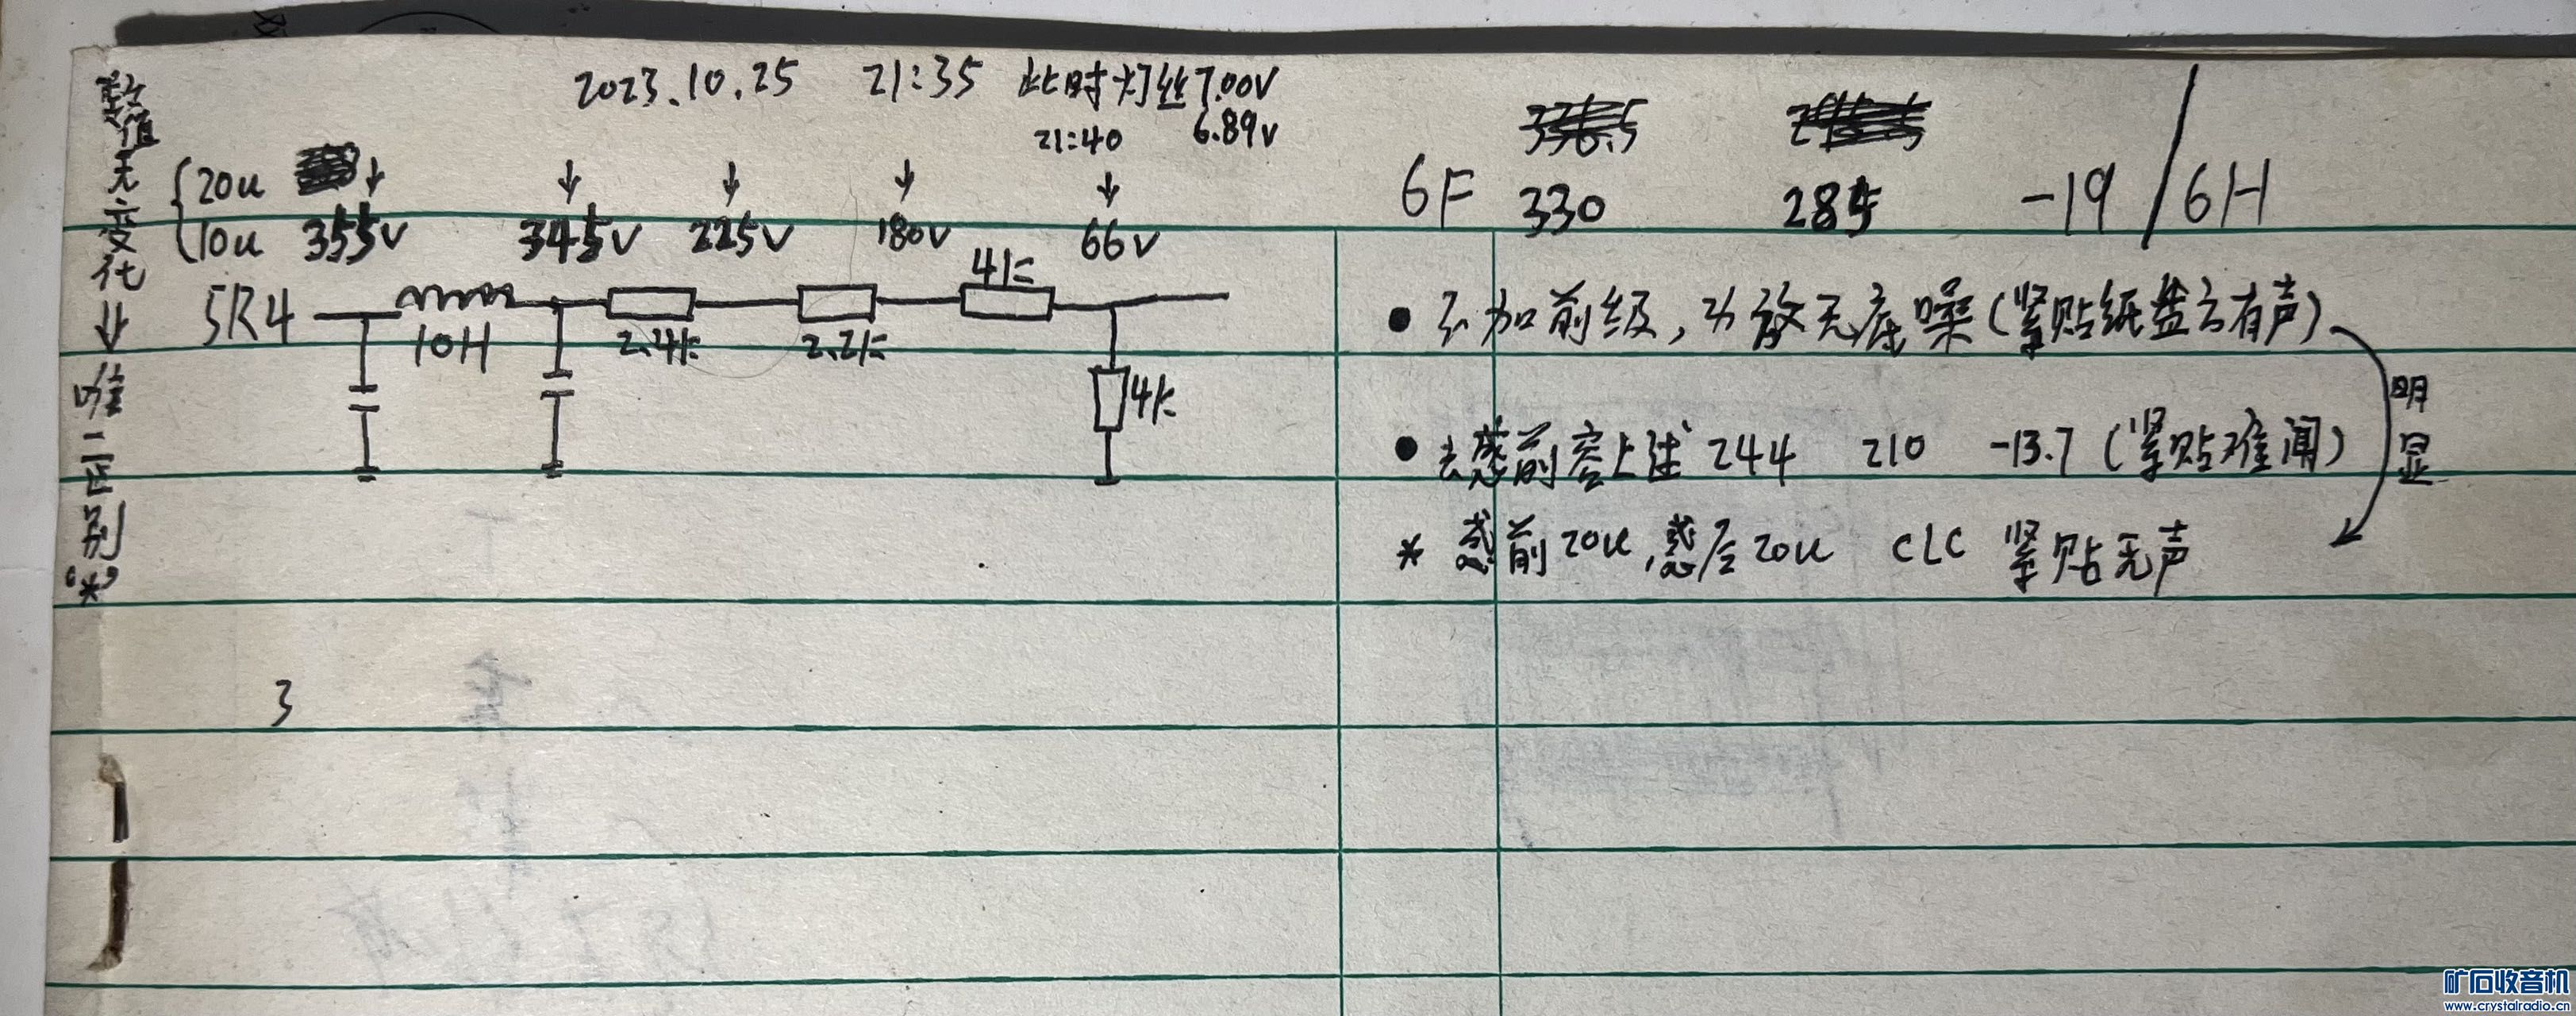 2023.10.25 21:35 此时灯丝7.00V
21:40 6.89V
数值无变化
唯一区别"*"
20u
10u
355V 345V 225V 180V 66V
5R4 10H 2.4k 2.2k 4k
4k
6F 330 285 -19 / 6H
● 不加前级,功放无底噪(紧贴纸盆方有声)
明显
● 去感前容上述 244 210 -13.7 (紧贴难闻)
* 感前20u,感后20u CLC 紧贴无声
3
矿石收音机
www.crystalradio.cn